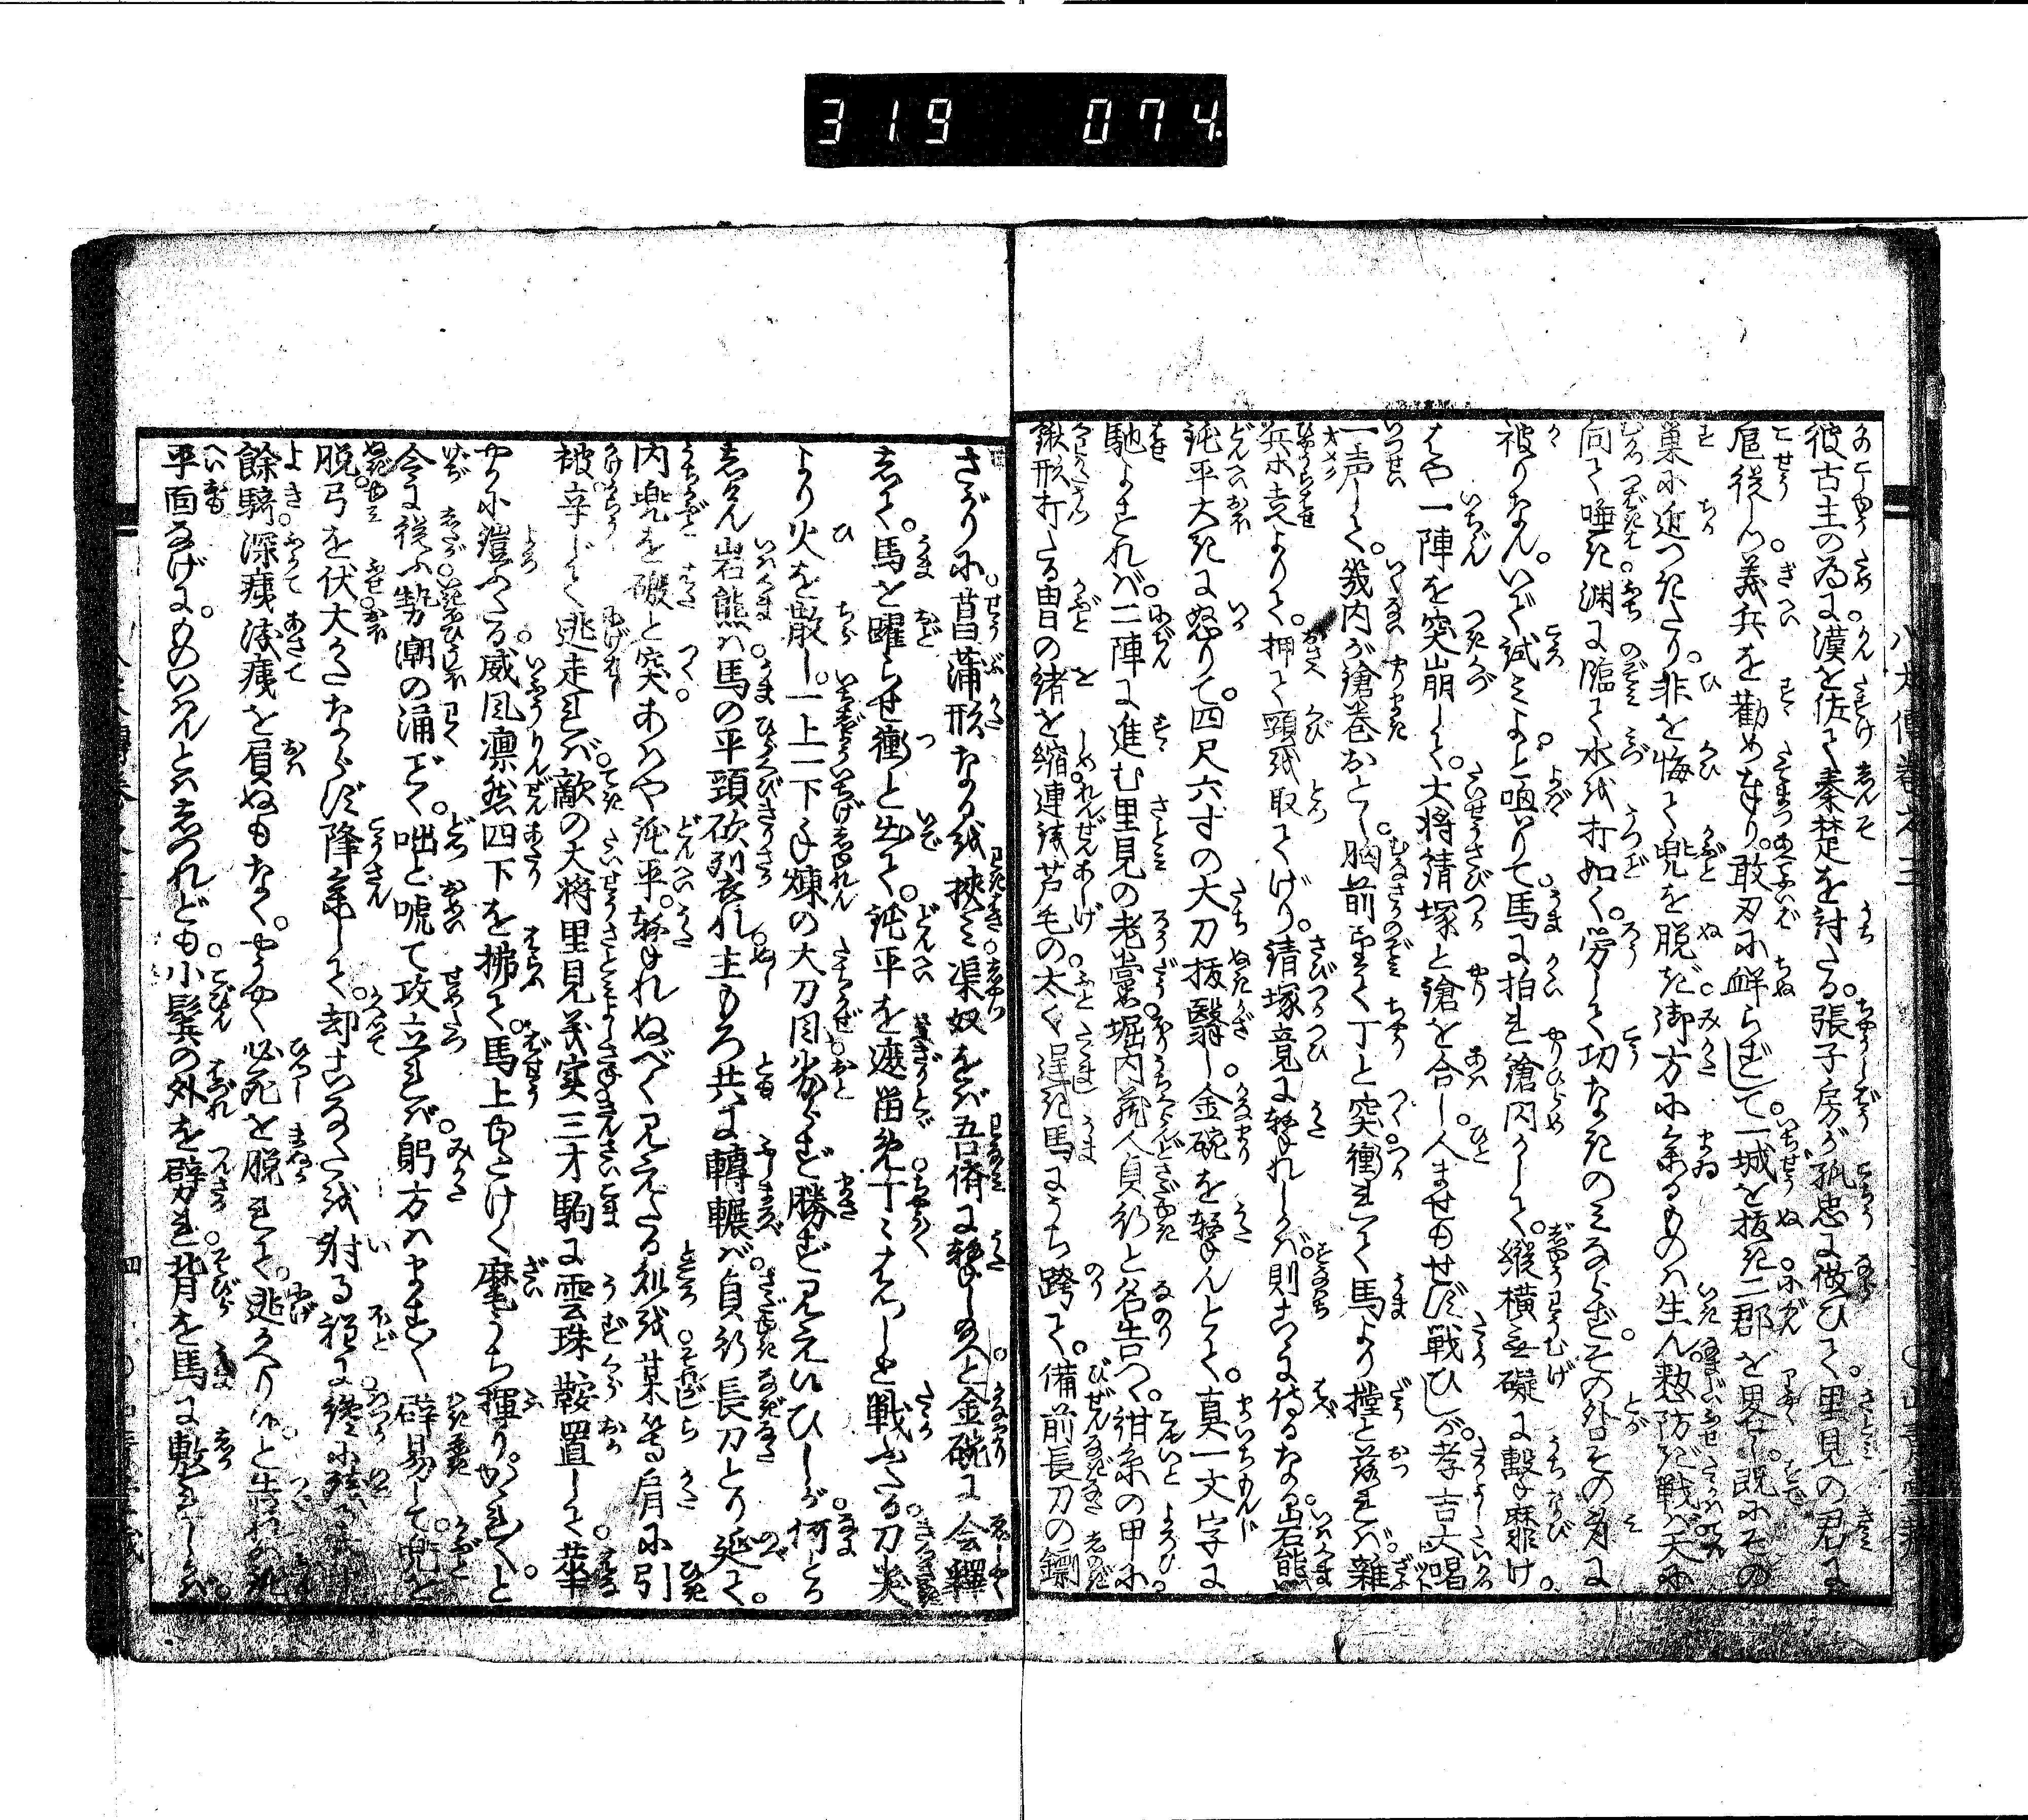 319 074
八犬傳巻之三
彼古主の為に漢を佐て秦楚を討たる。張子房が孤忠に做ひて。里見の君に
扈従し。義兵を勸め奉り。敢刃に衅らずして。一城を抜き二郡を畧し。既にその
巣に近つきたり。非を悔て兜を脱ぎ。御方に参るものは生ん。愁防ぎ戦ば天に
向て唾き。渊に臨て水を打如く。労して功なきのみならず。その咎その身に
被りなん。いで試みよと喚りて。馬に拍れ鎗閃かして。縦横無礙に撃靡け。
はや一陣を突崩して。大将錆塚と鎗を合し。人ませもせず戦ひしが。孝吉大喝
一声して。幾内が鎗巻おとし。胸前望て丁と突。衝れて馬より撞と落れば。雜
兵求走よりて。押て頸を取てげり。錆塚竟に撃れしかば。則これに侍るなる。岩熊
鈍平大きに怒りて。四尺六寸の大刀抜翳し。金碗を撃んとて。真一文字に
馳よされば。二陣に進む里見の老黨。堀内蔵人貞行と名告つ。紺糸の甲に
鍬形打たる冑の緒を縮。連銭芦毛の太く逞き馬にうち跨て。備前長刀の鐗
さがりに。菖蒲形なるを挾み。渠奴をば吾儕に撃し給へと金碗に会釋
して。馬を躍らせ衝と出て。鈍平を遮留。丁々はつしと戦ふたる。刀尖
より火を散し。一上一下手煉の大刀風。劣らず勝ず見えにひしが。何とか
しけん岩熊は。馬の平頸砍列れ。主もろ共に轉輾ば。貞行長刀とり延て。
内兜を礒と突。あはや鈍平。撃れぬべく見えたる処を。某等肩に引
被。辛じて逃走れば。敵の大将里見義実。三才駒に雲珠鞍置して。華
やかに鎧ふたる。威風凛然四下を拂て。馬上ゆたけく麾うち揮り。かゝれ〳〵と
令に從ふ勢潮の涌ごく。咄と唬て攻立れば。躬方はます〳〵辟易して。兜を
脱。弓を伏。大かたならず降参して。却こなたを射る程に。纔に残
餘騎。深痍淺痍を負ぬもなく。やうやく必死を脱れて。逃かへり候。と
平面なげに。のめいはんとはしつれども。小鬢の外を劈れ。背を馬に敷れしかば。